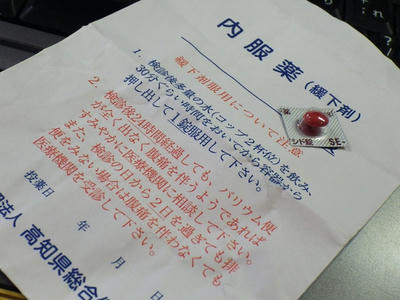 内服薬(緩下剤)
緩下剤服用について注意
1. 検診後多量の水(コップ2杯位)を飲み、
30分ぐらい時間をおいてから容器から
押し出して1錠服用して下さい。
2. 検診後24時間経過しても、バリウム便
が全く出なく腹痛を伴うようであれば
すみやかに医療機関に相談して下さい。
また、検診の日から2日を過ぎても排
便をみない場合は腹痛を伴わなくても
医療機関を受診して下さい。
投薬日 年 月 日
法人 高知県総合
シド錠 SE-